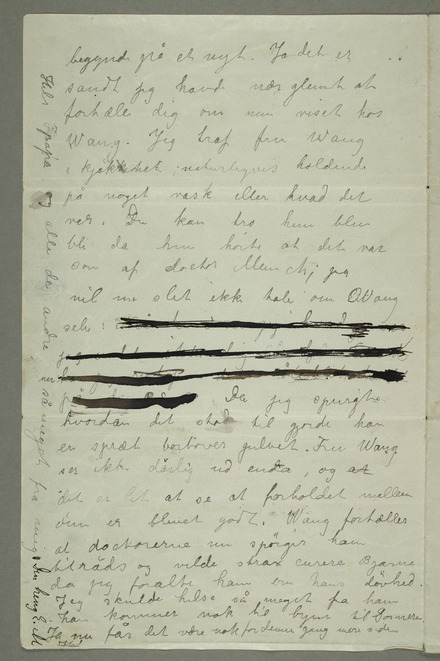 begynde på et nyt. Ja det er
sandt jeg havde nær glemt at
fortælle dig om min visit hos
Wang. Jeg traf fru Wang
i kjøkkenet, naturligvis holdende
på noget vask eller hvad det
var. Du kan tro hun blev
bli da hun hørte at det var
søn af doctor Munch; jeg
vil nu slet ikke tale om Wang
selv:
Da jeg spurgte
hvordan det stod til gjorde han
en spræt bortover gulvet. Fru Wang
ser ikke dårlig ud enda, og at
det er let at se at forholdet mellem
dem er blevet godt. Wang fortæller
at doctorerne nu spørger ham
til råds og vilde strax curere Bjarne
da jeg fortalte ham om hans døvhed.
Jeg skulde hilse så meget fra ham
han kommer nok til byen til
Ja nu får det være nok for denne gang mere siden
Hils Papa og alle de andre så meget fra mig